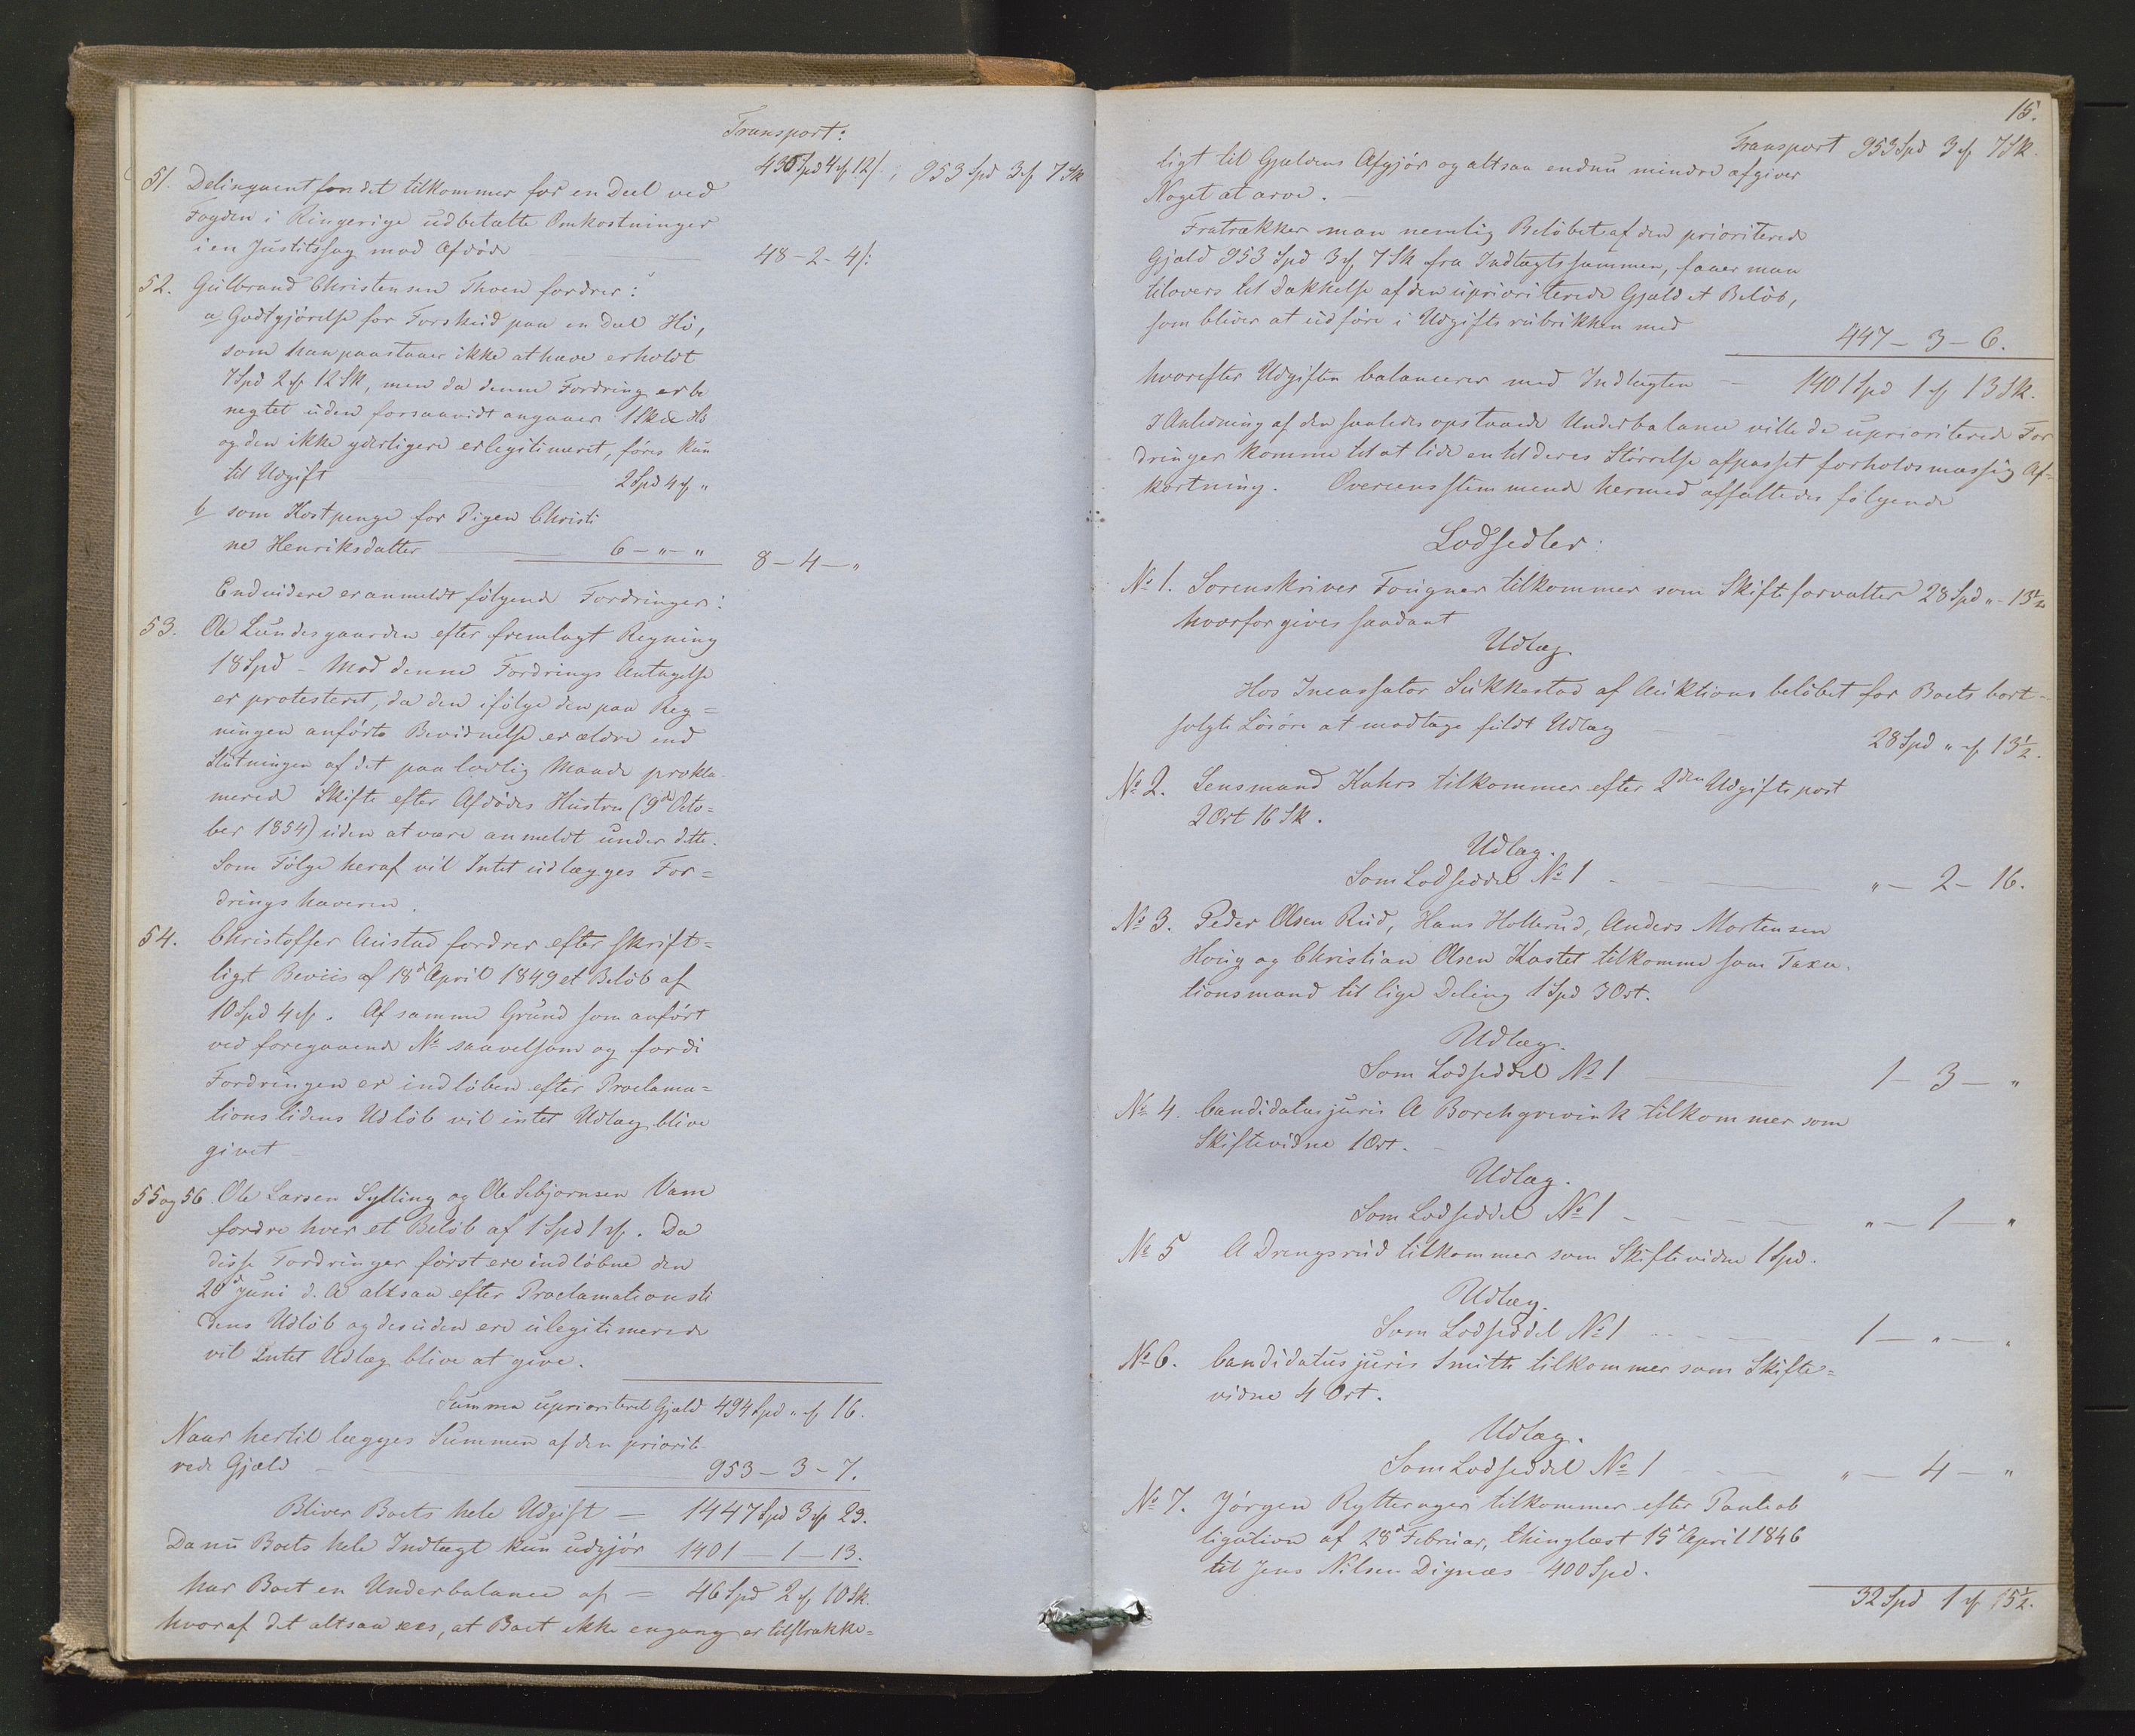 Transport:
436 Spd 4 ₰ 12 /: ; 953 Spd 3 ₰ 7 Sk
51. Delinquentfondet tilkommer for en Deel ved
Fogden i Ringerige udbetalte Omkostninger
i en Justitssag mod Afdøde 48 - 2 - 4 /:
52. Gulbrand Christensen Thoen fordrer:
a Godtgjørelse for Forskud paa en Deel Hø,
som han paastaaer ikke at have erholdt
7 Spd 2 ₰ 12 Sk, men da denne Fordring er be
negtet uden forsaavidt angaaer 1 Sk Hø
og den ikke yderligere er legitimeret, føres kun
til Udgift 2 Spd 4 ₰ "
b som Kostpenge for Pigen Christi
ne Henriksdatter 6 - " - " 8 - 4 - "
Endvidere er anmeldt følgende Fordringer:
53. Ole Lundesgaarden efter fremlagt Regning
18 Spd - Mod denne Fordrings Antagelse
er protesteret, da den ifølge den paa Reg=
ningen anførte Bevidnelse er ældre end
Slutningen af det paa lovlig Maade prokla
merede Skifte efter Afdødes Hustru (9de Octo=
ber 1854) uden at være anmeldt under dette.
Som Følge heraf vil Intet udlægges For=
dringshaveren.
54. Christoffer Austad fordrer efter skrift=
ligt Beviis af 18d April 1849 et Beløb af
10 Spd 4 ₰. Af samme Grund som anført
ved foregaaende No saavelsom og fordi
Fordringen er indløben efter Proclama=
tionstidens Udløb vil intet Udlæg blive
givet -
55 og 56. Ole Larsen Sylling og Ole Sebjørnsen Vam
fordre hver et Beløb af 1 Spd 1 ₰. Da
disse Fordringer først ere indløbne den
20d Juni d. A altsaa efter Proclamationsti
dens Udløb og desuden ere ulegitimerede
vil Intet Udlæg blive at give.
Summa uprioriteret Gjæld 494 Spd " ₰ 16.
Naar hertil lægges Summen af den priorite
rede Gjæld 953 - 3 - 7.
Bliver Boets hele Udgift — 1447 Spd 3 ₰ 23.
Da nu Boets hele Indtægt kun udgjør 1401 - 1 - 13.
har Boet en Underbalance af = 46 Spd 2 ₰ 10 Sk.
hvoraf det altsaa sees, at Boet ikke engang er tilstrække=
15.
Transport 953 Spd 3 ₰ 7 Sk.
ligt til Gjældens Afgjør og altsaa endnu mindre afgiver
Noget at arve. —
Fratrækker man nemlig Beløbet af den prioriterede
Gjæld 953 Spd 3 ₰ 7 Sk fra Indtægtssummen, faaer man
tilovers til Dækkelse af den uprioriterede Gjæld et Beløb,
som bliver at udføre i Udgiftsrubrikken med 447 - 3 - 6.
hvorefter Udgiften balancerer med Indtægten — 1401 Spd 1 ₰ 13 Sk.
I Anledning af den saaledes opstaaede Underbalance ville de uprioriterede For
dringer komme til at lide en til deres Størrelse afpasset forholdsmæssig Af=
kortning. Overeensstemmende hermed affattedes følgende
Lodsedler:
No 1. Sorenskriver Fougner tilkommer som Skifteforvalter 28 Spd " - 13½
hvorfor gives saadant
Udlæg.
Hos Incassator Sukkestad af Auktionsbeløbet for Boets bort=
solgte Løsøre at modtage fuldt Udlæg 28 Spd " ₰ 13½.
No 2. Lensmand Kahrs tilkommer efter 2den Udgiftspost
2 Ort 16 Sk.
Udlæg.
Som Lodseddel No 1 " - 2 - 16.
No 3. Peder Olsen Rud, Hans Hollerud, Anders Mortensen
Houg og Christian Olsen Kastet tilkomme som Taxa
tionsmænd til lige Deling 1 Spd 3 Ort.
Udlæg.
Som Lodseddel No 1 1 - 3 - "
No 4. Candidatus juris A Borchgrevink tilkommer som
Skiftevidne 1 Ort. -
Udlæg.
Som Lodseddel No 1 " - 1 - "
No 5 A Drengsrud tilkommer som Skiftevidne 1 Spd.
Udlæg.
Som Lodseddel No 1 1 - " - "
No 6. Candidatus juris Smith tilkommer som Skifte=
vidne 4 Ort.
Udlæg.
Som Lodseddel No 1 " - 4 - "
No 7. Jørgen Rytterager tilkommer efter Panteob
ligation af 28d Februar, thinglæst 15d April 1846
til Jens Nilsen Dignæs 400 Spd.
32 Spd 1 ₰ 15½.